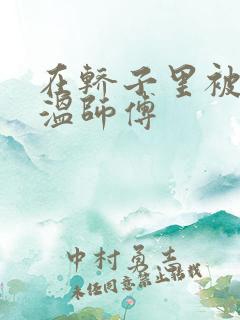 在轿子里被
温师傅
中村勇士
未经同意禁止转载